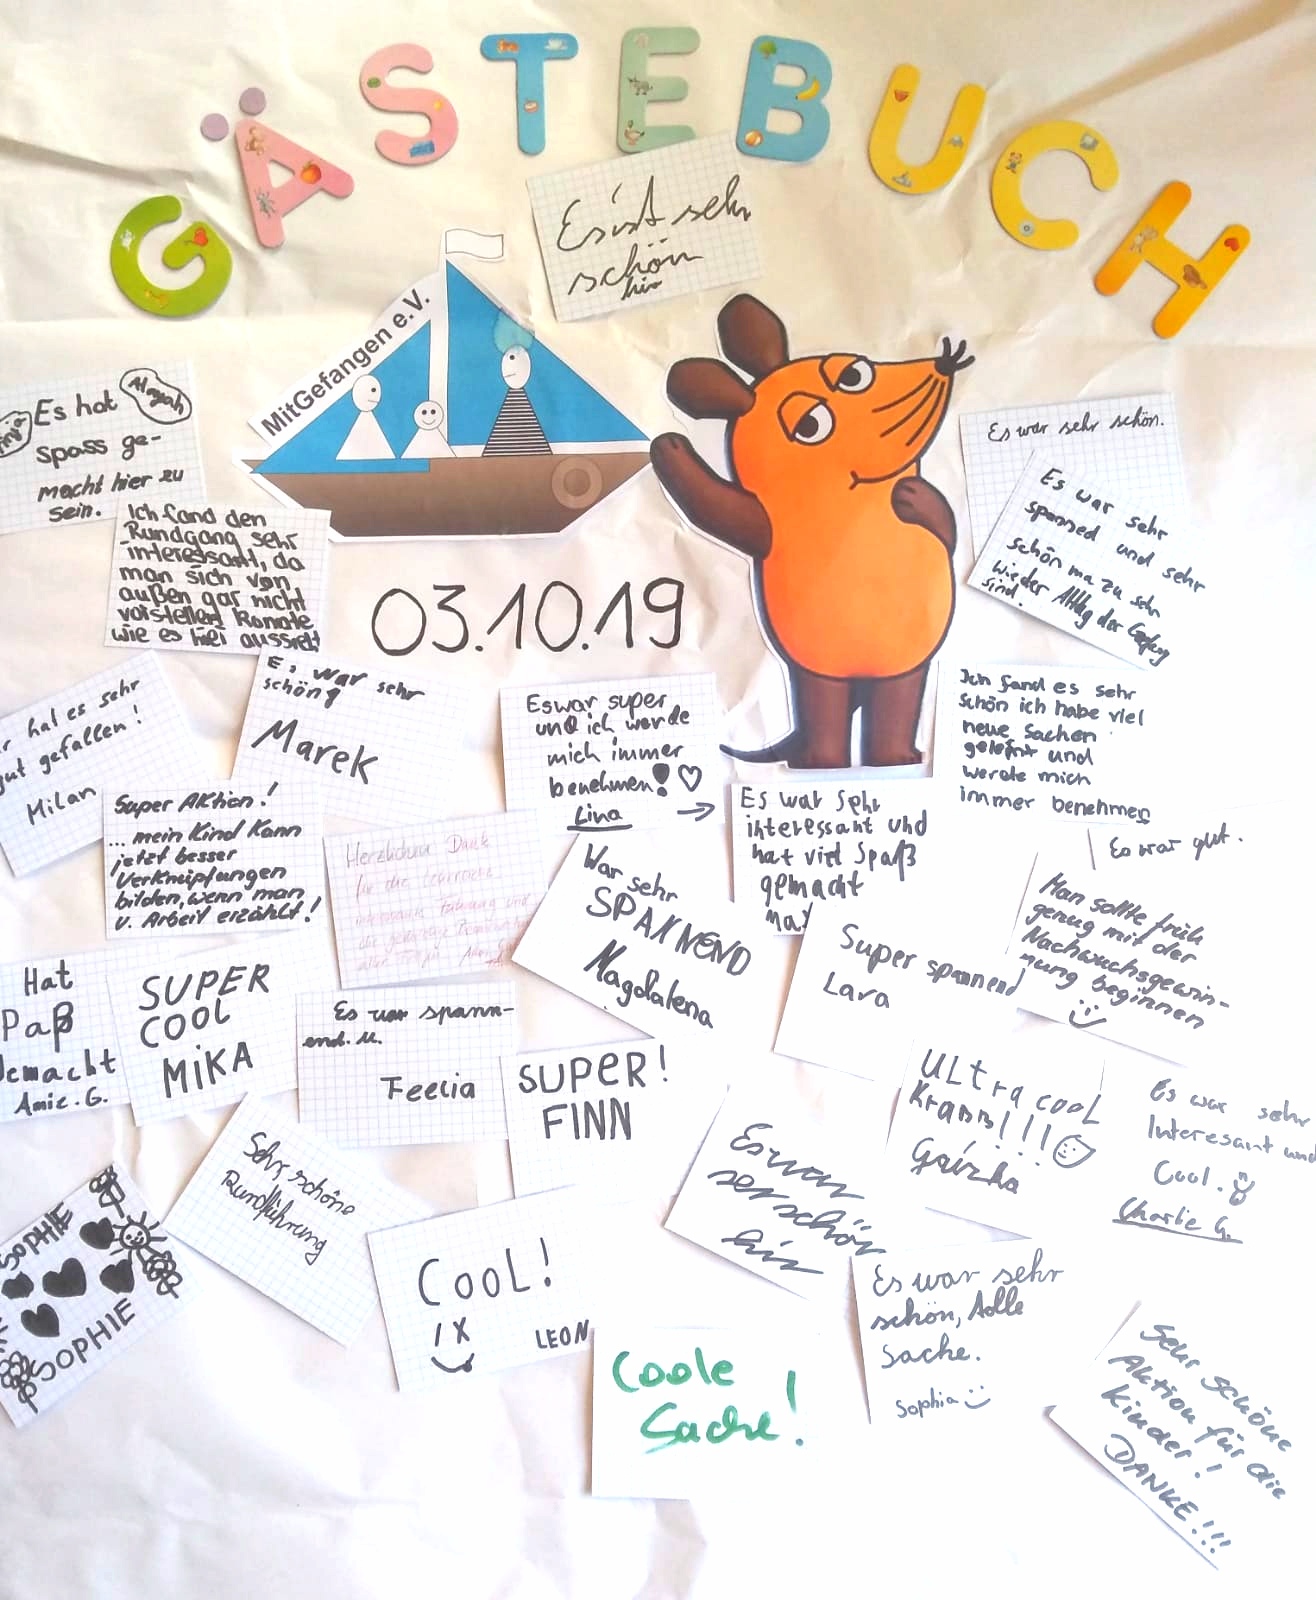 GÄSTEBUCH
Es ist sehr
schön
hir
MitGefangen e.V.
Es hat
Spass ge-
macht hier zu
sein.
Es war sehr schön.
Es war sehr
spanned und sehr
schön ma zu sehn
wie der Alltag der
sind.
Ich fand den
Rundgang sehr
interessant, da
man sich von
außen gar nicht
vorstellen konnte
wie es hier aussieht
03.10.19
hat es sehr
gut gefallen!
Milan
Es war sehr
schön
Marek
Es war super
und ich werde
mich immer
benehmen!
Lina
Ich fand es sehr
schön ich habe viel
neue Sachen
gelernt und
werde mich
immer benehmen
Super Aktion!
... mein Kind kann
jetzt besser
Verknüpfungen
bilden, wenn man
v. Arbeit erzählt!
Herzlichen Dank
für die
Führung und
die
Es war sehr
interessant und
hat viel Spaß
gemacht
Max
Es war gut.
War sehr
SPANNEND
Magdalena
Super spannend
Lara
Man sollte früh
genug mit der
Nachwuchsgewin-
nung beginnen
Hat
Paß
Gemacht
Amie. G.
SUPER
COOL
MiKA
Es war spann-
end. u.
Feelia
SUPER!
FINN
ULtra cooL
Krass!!!
Es war sehr
Interesant und
Cool.
Charlie G.
Sehr schöne
Rundführung
Es war
ser schön
hir
SOPHIE
SOPHIE
CooL!
LEON
Es war sehr
schön, tolle
Sache.
Sophia
Coole
Sache!
Sehr schöne
Aktion für die
Kinder!
DANKE!!!